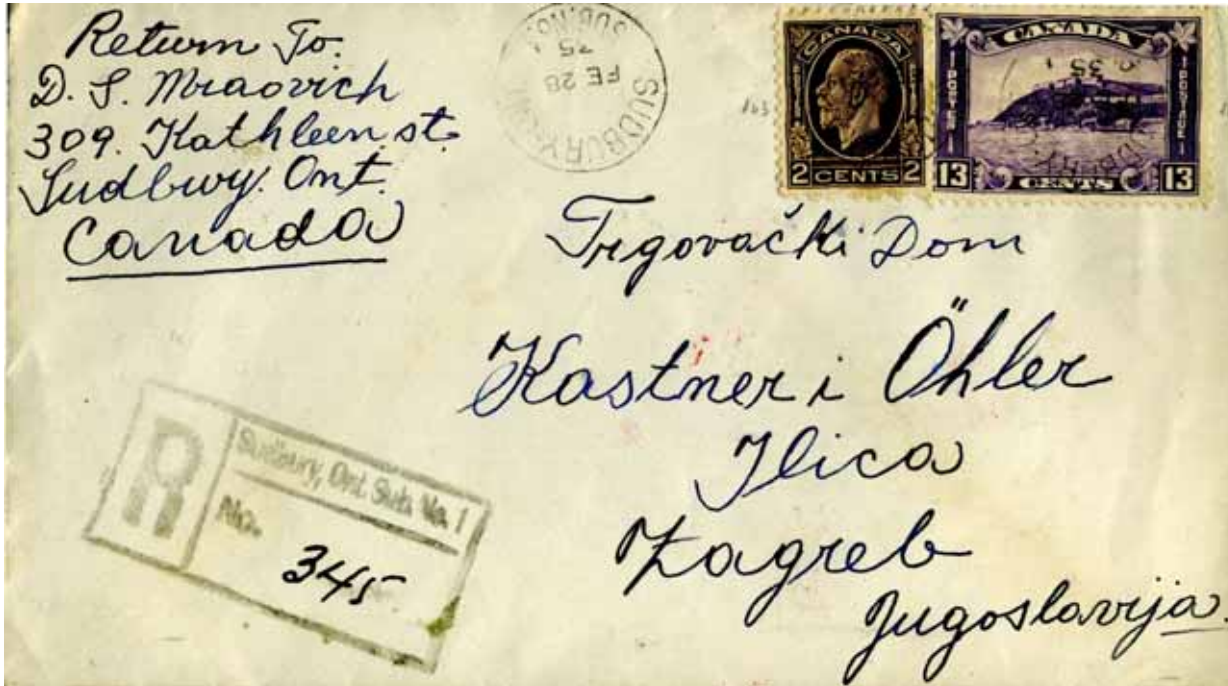 Return To.
D. S. Mraovich
309. Kathleen st.
Sudbury. Ont.
Canada
SUDBURY
FE 28
35
SUB. NO. 1
CANADA
2 CENTS 2
CANADA
POSTES
POSTAGE
13 CENTS 13
Trgovački Dom
Kastner i Öhler
Ilica
Zagreb
Jugoslavija.
R
Sudbury, Ont. Sub. No. 1
No.
3445